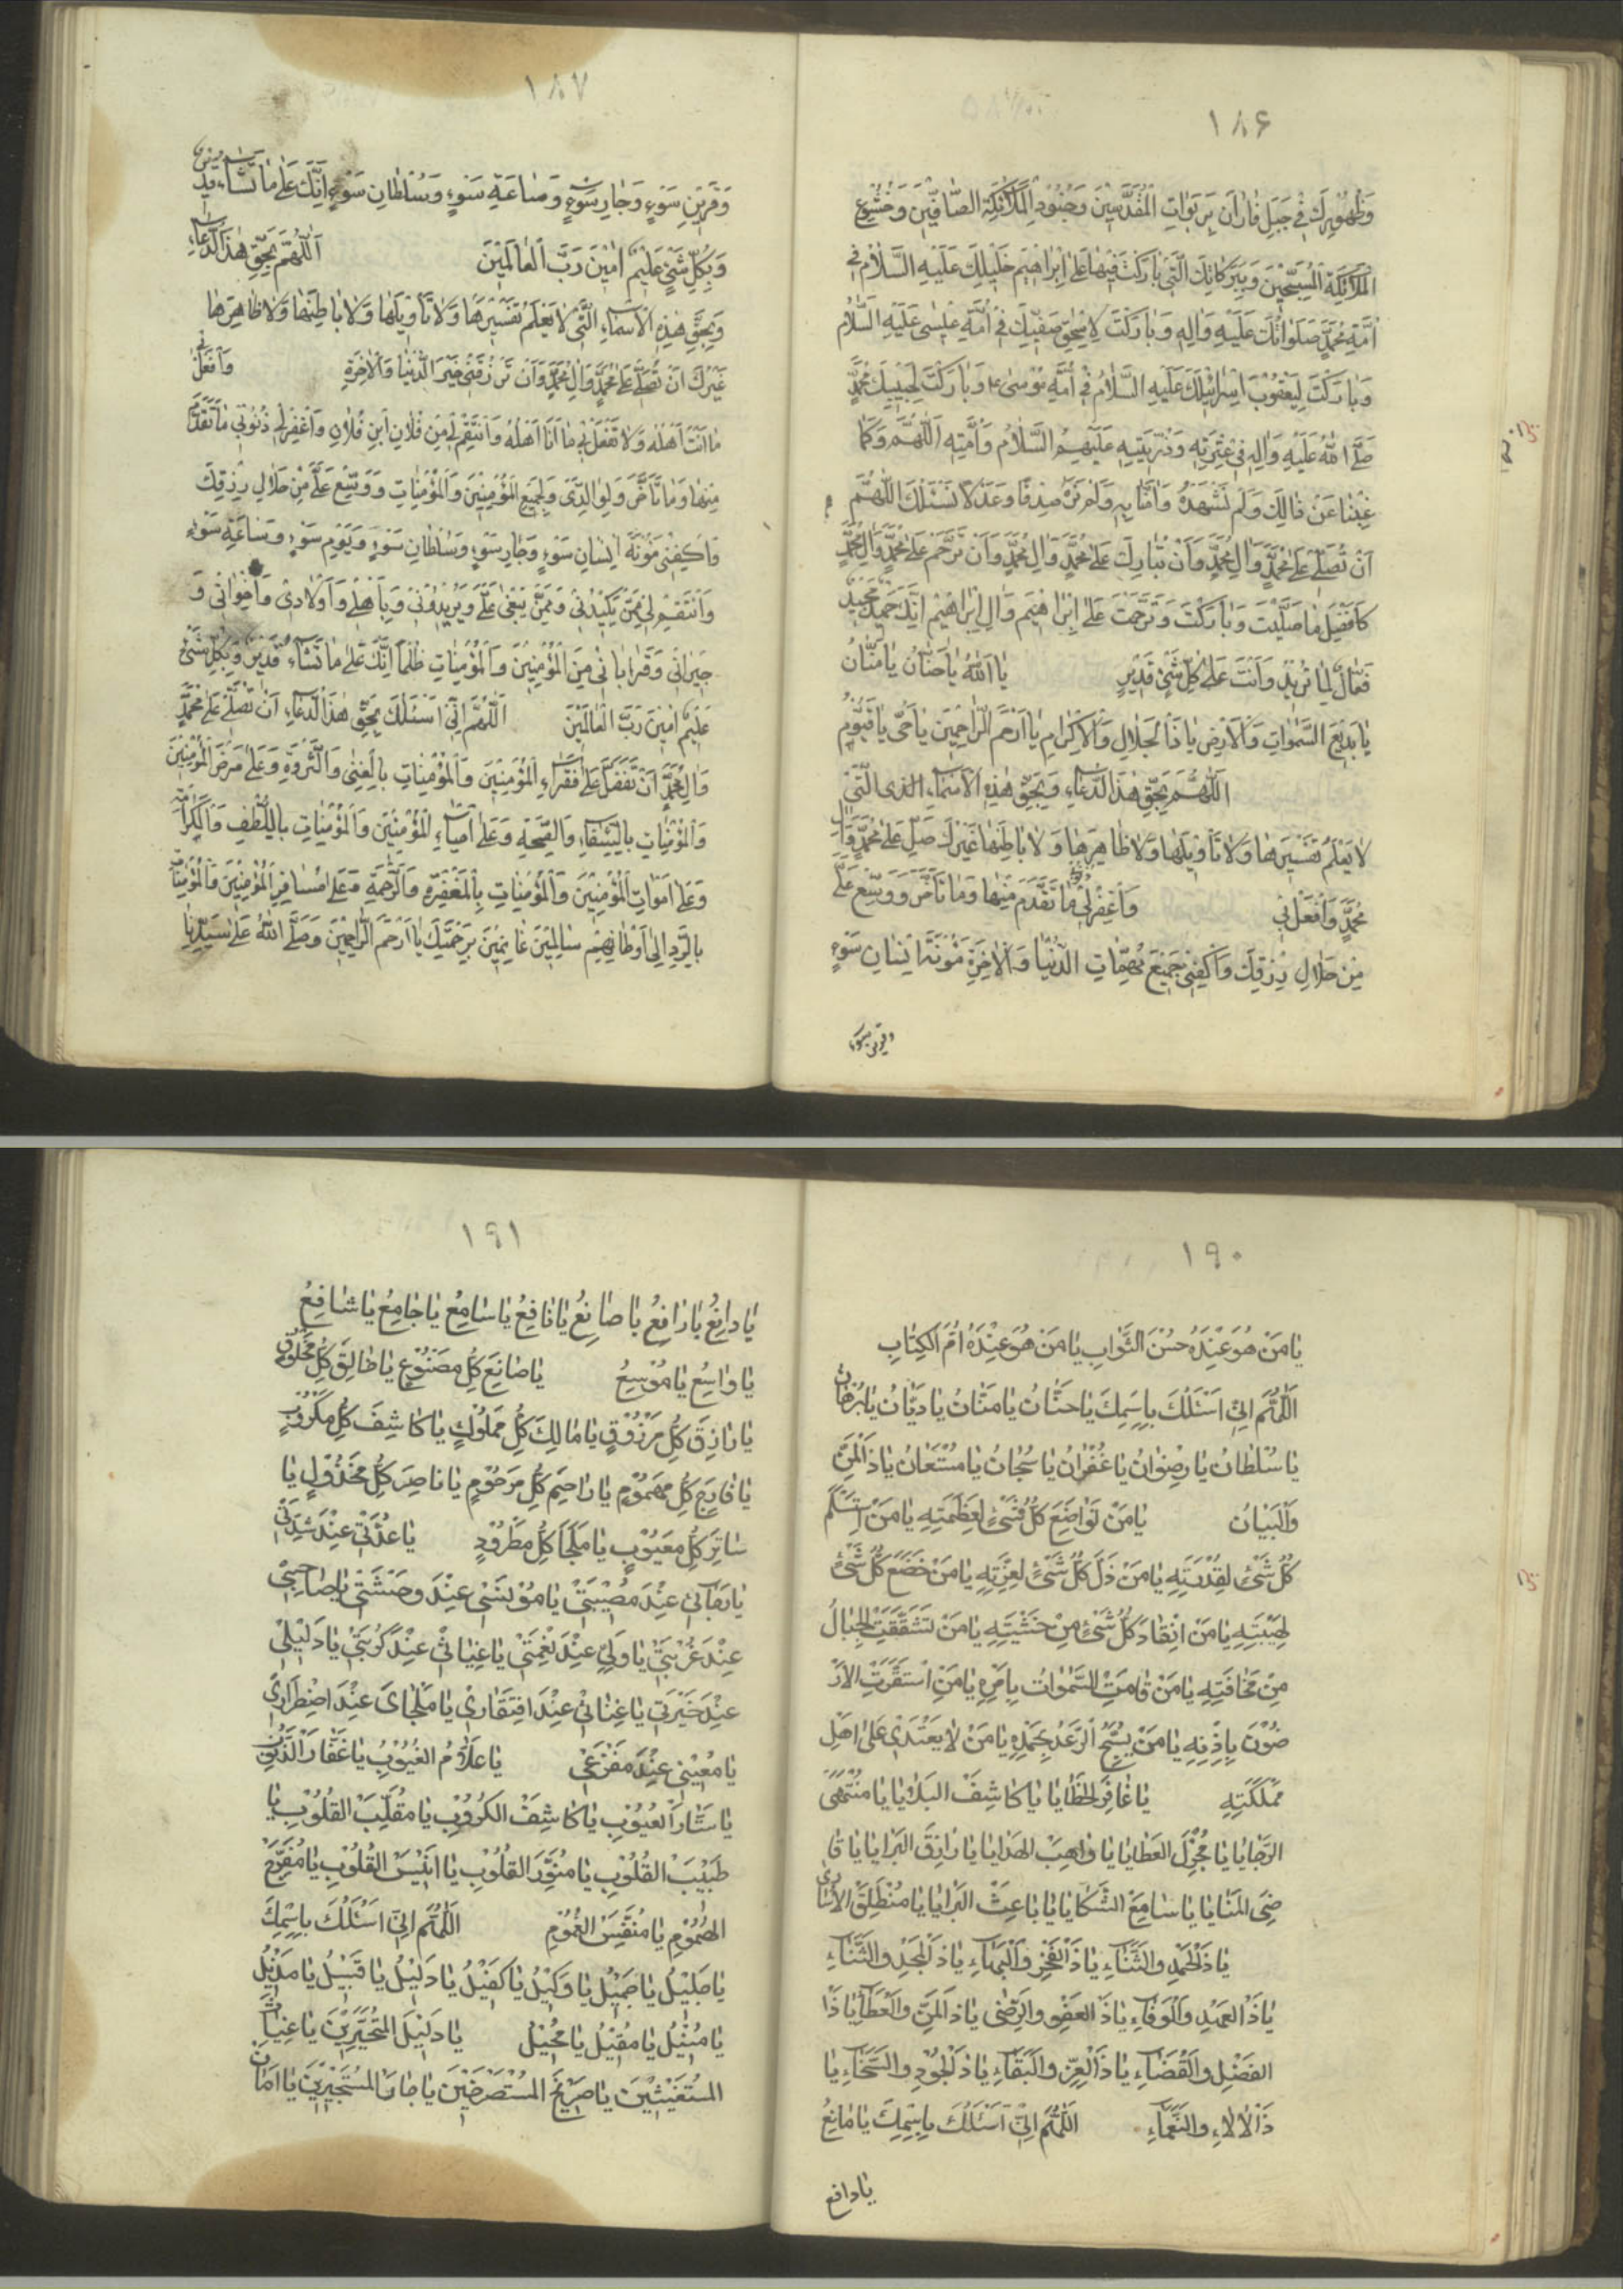 ١٨۶
وَظُهُورِكَ فِى جَبَلِ فَارَانَ بِرَبَوَاتِ الْمُقَدَّسِينَ وَجُنُودِ الْمَلَائِكَةِ الصَّافِّينَ وَخُشُوعِ
الْمَلَائِكَةِ الْمُسَبِّحِينَ وَبِبَرَكَاتِكَ الَّتِى بَارَكْتَ فِيهَا عَلَى اِبْرَاهِيمَ خَلِيلِكَ عَلَيْهِ السَّلَامُ فِى
اُمَّةِ مُحَمَّدٍ صَلَوَاتُكَ عَلَيْهِ وَاٰلِهِ وَبَارَكْتَ لِاِسْحٰقَ صَفِيِّكَ فِى اُمَّةِ عِيسٰى عَلَيْهِ السَّلَامُ
وَبَارَكْتَ لِيَعْقُوبَ اِسْرَائِيلِكَ عَلَيْهِ السَّلَامُ فِى اُمَّةِ مُوسٰى ع وَبَارَكْتَ لِحَبِيبِكَ مُحَمَّدٍ
صَلَّى اللّٰهُ عَلَيْهِ وَاٰلِهِ فِى عِتْرَتِهِ وَذُرِّيَّتِهِ عَلَيْهِمُ السَّلَامُ وَاُمَّتِهِ اَللّٰهُمَّ وَكَمَا
غِبْنَا عَنْ ذٰلِكَ وَلَمْ نَشْهَدْهُ وَاٰمَنَّا بِهِ وَلَمْ نَرَهُ صِدْقًا وَعَدْلًا نَسْئَلُكَ اللّٰهُمَّ
اَنْ تُصَلِّىَ عَلٰى مُحَمَّدٍ وَاٰلِ مُحَمَّدٍ وَاَنْ تُبَارِكَ عَلٰى مُحَمَّدٍ وَاٰلِ مُحَمَّدٍ وَاَنْ تَرَحَّمَ عَلٰى مُحَمَّدٍ وَاٰلِ مُحَمَّدٍ
كَاَفْضَلِ مَا صَلَّيْتَ وَبَارَكْتَ وَتَرَحَّمْتَ عَلٰى اِبْرَاهِيمَ وَاٰلِ اِبْرَاهِيمَ اِنَّكَ حَمِيدٌ مَجِيدٌ
فَعَّالٌ لِمَا تُرِيدُ وَاَنْتَ عَلٰى كُلِّ شَىْءٍ قَدِيرٌ يَا اَللّٰهُ يَا حَنَّانُ يَا مَنَّانُ
يَا بَدِيعَ السَّمٰوَاتِ وَالْاَرْضِ يَا ذَا الْجَلَالِ وَالْاِكْرَامِ يَا اَرْحَمَ الرَّاحِمِينَ يَا حَىُّ يَا قَيُّومُ
اَللّٰهُمَّ بِحَقِّ هٰذَا الدُّعَاءِ وَبِحَقِّ هٰذِهِ الْاَسْمَاءِ الذى الَّتِى
لَا يَعْلَمُ تَفْسِيرَهَا وَلَا تَأْوِيلَهَا وَلَا ظَاهِرَهَا وَلَا بَاطِنَهَا غَيْرُكَ صَلِّ عَلٰى مُحَمَّدٍ وَاٰلِ
مُحَمَّدٍ وَافْعَلْ بِى وَاغْفِرْ لِى مَا تَقَدَّمَ مِنْهَا وَمَا تَأَخَّرَ وَوَسِّعْ عَلَىَّ
مِنْ حَلَالِ رِزْقِكَ وَاكْفِنِى جَمِيعَ مُهِمَّاتِ الدُّنْيَا وَالْاٰخِرَةِ مَؤُنَةَ اِنْسَانِ سَوْءٍ
وقرين سوء
١٨٧
وَقَرِينِ سَوْءٍ وَجَارِ سَوْءٍ وَسَاعَةِ سَوْءٍ وَسُلْطَانِ سَوْءٍ اِنَّكَ عَلٰى مَا تَشَاءُ قَدِيرٌ
وَبِكُلِّ شَىْءٍ عَلِيمٌ اٰمِينَ رَبَّ الْعَالَمِينَ اَللّٰهُمَّ بِحَقِّ هٰذَا الدُّعَاءِ
وَبِحَقِّ هٰذِهِ الْاَسْمَاءِ الَّتِى لَا يَعْلَمُ تَفْسِيرَهَا وَلَا تَأْوِيلَهَا وَلَا بَاطِنَهَا وَلَا ظَاهِرَهَا
غَيْرُكَ اَنْ تُصَلِّىَ عَلٰى مُحَمَّدٍ وَاٰلِ مُحَمَّدٍ وَاَنْ تَرْزُقَنِى خَيْرَ الدُّنْيَا وَالْاٰخِرَةِ وَافْعَلْ بى
مَا اَنْتَ اَهْلُهُ وَلَا تَفْعَلْ بِى مَا اَنَا اَهْلُهُ وَانْتَقِمْ لِى مِنْ فُلَانِ ابْنِ فُلَانٍ وَاغْفِرْ لِى ذُنُوبِى مَا تَقَدَّمَ
مِنْهَا وَمَا تَأَخَّرَ وَلِوَالِدَىَّ وَلِجَمِيعِ الْمُؤْمِنِينَ وَالْمُؤْمِنَاتِ وَوَسِّعْ عَلَىَّ مِنْ حَلَالِ رِزْقِكَ
وَاكْفِنِى مَؤُنَةَ اِنْسَانِ سَوْءٍ وَجَارِ سَوْءٍ وَسُلْطَانِ سَوْءٍ وَيَوْمِ سَوْءٍ وَسَاعَةِ سَوْءٍ
وَانْتَقِمْ لِى مِمَّنْ يَكِيدُنِى وَمِمَّنْ يَبْغِى عَلَىَّ وَيُرِيدُونِى وَبِاَهْلِى وَاَوْلَادِى وَاِخْوَانِى وَ
جِيرَانِى وَقَرَابَاتِى مِنَ الْمُؤْمِنِينَ وَالْمُؤْمِنَاتِ ظُلْمًا اِنَّكَ عَلٰى مَا تَشَاءُ قَدِيرٌ وَبِكُلِّ شَىْءٍ
عَلِيمٌ اٰمِينَ رَبَّ الْعَالَمِينَ اَللّٰهُمَّ اِنِّى اَسْئَلُكَ بِحَقِّ هٰذَا الدُّعَاءِ اَنْ تُصَلِّىَ عَلٰى مُحَمَّدٍ
وَاٰلِ مُحَمَّدٍ اَنْ تَفَضَّلْ عَلٰى فُقَرَاءِ الْمُؤْمِنِينَ وَالْمُؤْمِنَاتِ بِالْغِنٰى وَالثَّرْوَةِ وَعَلٰى مَرْضَى الْمُؤْمِنِينَ
وَالْمُؤْمِنَاتِ بِالشِّفَاءِ وَالصِّحَّةِ وَعَلٰى اَحْيَاءِ الْمُؤْمِنِينَ وَالْمُؤْمِنَاتِ بِاللُّطْفِ وَالْكَرَامَةِ
وَعَلٰى اَمْوَاتِ الْمُؤْمِنِينَ وَالْمُؤْمِنَاتِ بِالْمَغْفِرَةِ وَالرَّحْمَةِ وَعَلٰى مُسَافِرِ الْمُؤْمِنِينَ وَالْمُؤْمِنَاتِ
بِالرَّدِّ اِلٰى اَوْطَانِهِمْ سَالِمِينَ غَانِمِينَ بِرَحْمَتِكَ يَا اَرْحَمَ الرَّاحِمِينَ وَصَلَّى اللّٰهُ عَلٰى سَيِّدِنَا
١٩٠
يَا مَنْ هُوَ عِنْدَهُ حُسْنُ الثَّوَابِ يَا مَنْ هُوَ عِنْدَهُ اُمُّ الْكِتَابِ
اَللّٰهُمَّ اِنِّى اَسْئَلُكَ بِاسْمِكَ يَا حَنَّانُ يَا مَنَّانُ يَا دَيَّانُ يَا بُرْهَانُ
يَا سُلْطَانُ يَا رِضْوَانُ يَا غُفْرَانُ يَا سُبْحَانُ يَا مُسْتَعَانُ يَا ذَا الْمَنِّ
وَالْبَيَانِ يَا مَنْ تَوَاضَعَ كُلُّ شَىْءٍ لِعَظَمَتِهِ يَا مَنِ اسْتَسْلَمَ
كُلُّ شَىْءٍ لِقُدْرَتِهِ يَا مَنْ ذَلَّ كُلُّ شَىْءٍ لِعِزَّتِهِ يَا مَنْ خَضَعَ كُلُّ شَىْءٍ
لِهَيْبَتِهِ يَا مَنِ انْقَادَ كُلُّ شَىْءٍ مِنْ خَشْيَتِهِ يَا مَنْ تَشَقَّقَتِ الْجِبَالُ
مِنْ مَخَافَتِهِ يَا مَنْ قَامَتِ السَّمٰوَاتُ بِاَمْرِهِ يَا مَنِ اسْتَقَرَّتِ الْاَرَ
ضُونَ بِاِذْنِهِ يَا مَنْ يُسَبِّحُ الرَّعْدُ بِحَمْدِهِ يَا مَنْ لَا يَعْتَدِى عَلٰى اَهْلِ
مَمْلَكَتِهِ يَا غَافِرَ الْخَطَايَا يَا كَاشِفَ الْبَلَايَا يَا مُنْتَهَى
الرَّجَايَا يَا مُجْزِلَ الْعَطَايَا يَا وَاهِبَ الْهَدَايَا يَا رَازِقَ الْبَرَايَا يَا قَا
ضِىَ الْمَنَايَا يَا سَامِعَ الشَّكَايَا يَا بَاعِثَ الْبَرَايَا يَا مُنْطَلِقَ الْاُسَارٰى
يَا ذَا الْحَمْدِ وَالثَّنَاءِ يَا ذَا الْفَخْرِ وَالْبَهَاءِ يَا ذَا الْمَجْدِ وَالثَّنَاءِ
يَا ذَا الْعَهْدِ وَالْوَفَاءِ يَا ذَا الْعَفْوِ وَالرِّضٰى يَا ذَا الْمَنِّ وَالْعَطَاءِ يَا ذَا
الْفَضْلِ وَالْقَضَاءِ يَا ذَا الْعِزِّ وَالْبَقَاءِ يَا ذَا الْجُودِ وَالسَّخَاءِ يَا
ذَا الْاٰلَاءِ وَالنَّعْمَاءِ اَللّٰهُمَّ اِنِّى اَسْئَلُكَ بِاسْمِكَ يَا مَانِعُ
يا دافع
١٩١
يَا دَافِعُ يَا رَافِعُ يَا صَانِعُ يَا نَافِعُ يَا سَامِعُ يَا جَامِعُ يَا شَافِعُ
يَا وَاسِعُ يَا مُوسِعُ يَا صَانِعَ كُلِّ مَصْنُوعٍ يَا خَالِقَ كُلِّ مَخْلُوقٍ
يَا رَازِقَ كُلِّ مَرْزُوقٍ يَا مَالِكَ كُلِّ مَمْلُوكٍ يَا كَاشِفَ كُلِّ مَكْرُوبٍ
يَا فَارِجَ كُلِّ مَهْمُومٍ يَا رَاحِمَ كُلِّ مَرْحُومٍ يَا نَاصِرَ كُلِّ مَخْذُولٍ يَا
سَاتِرَ كُلِّ مَعْيُوبٍ يَا مَلْجَأَ كُلِّ مَطْرُودٍ يَا عُدَّتِى عِنْدَ شِدَّتِى
يَا رَجَائِى عِنْدَ مُصِيبَتِى يَا مُونِسِى عِنْدَ وَحْشَتِى يَا صَاحِبِى
عِنْدَ غُرْبَتِى يَا وَلِيِّى عِنْدَ نِعْمَتِى يَا غِيَاثِى عِنْدَ كُرْبَتِى يَا دَلِيلِى
عِنْدَ حَيْرَتِى يَا غِنَائِى عِنْدَ افْتِقَارِى يَا مَلْجَاىَ عِنْدَ اضْطِرَارِى
يَا مُعِينِى عِنْدَ مَفْزَعِى يَا عَلَّامَ الْغُيُوبِ يَا غَفَّارَ الذُّنُوبِ
يَا سَتَّارَ الْعُيُوبِ يَا كَاشِفَ الْكُرُوبِ يَا مُقَلِّبَ الْقُلُوبِ يَا
طَبِيبَ الْقُلُوبِ يَا مُنَوِّرَ الْقُلُوبِ يَا اَنِيسَ الْقُلُوبِ يَا مُفَرِّجَ
الْهُمُومِ يَا مُنَفِّسَ الْغُمُومِ اَللّٰهُمَّ اِنِّى اَسْئَلُكَ بِاسْمِكَ
يَا جَلِيلُ يَا جَمِيلُ يَا وَكِيلُ يَا كَفِيلُ يَا دَلِيلُ يَا قَبِيلُ يَا مُدِيلُ
يَا مُنِيلُ يَا مُقِيلُ يَا مُحِيلُ يَا دَلِيلَ الْمُتَحَيِّرِينَ يَا غِيَاثَ
الْمُسْتَغِيثِينَ يَا صَرِيخَ الْمُسْتَصْرِخِينَ يَا جَارَ الْمُسْتَجِيرِينَ يَا اَمَانَ